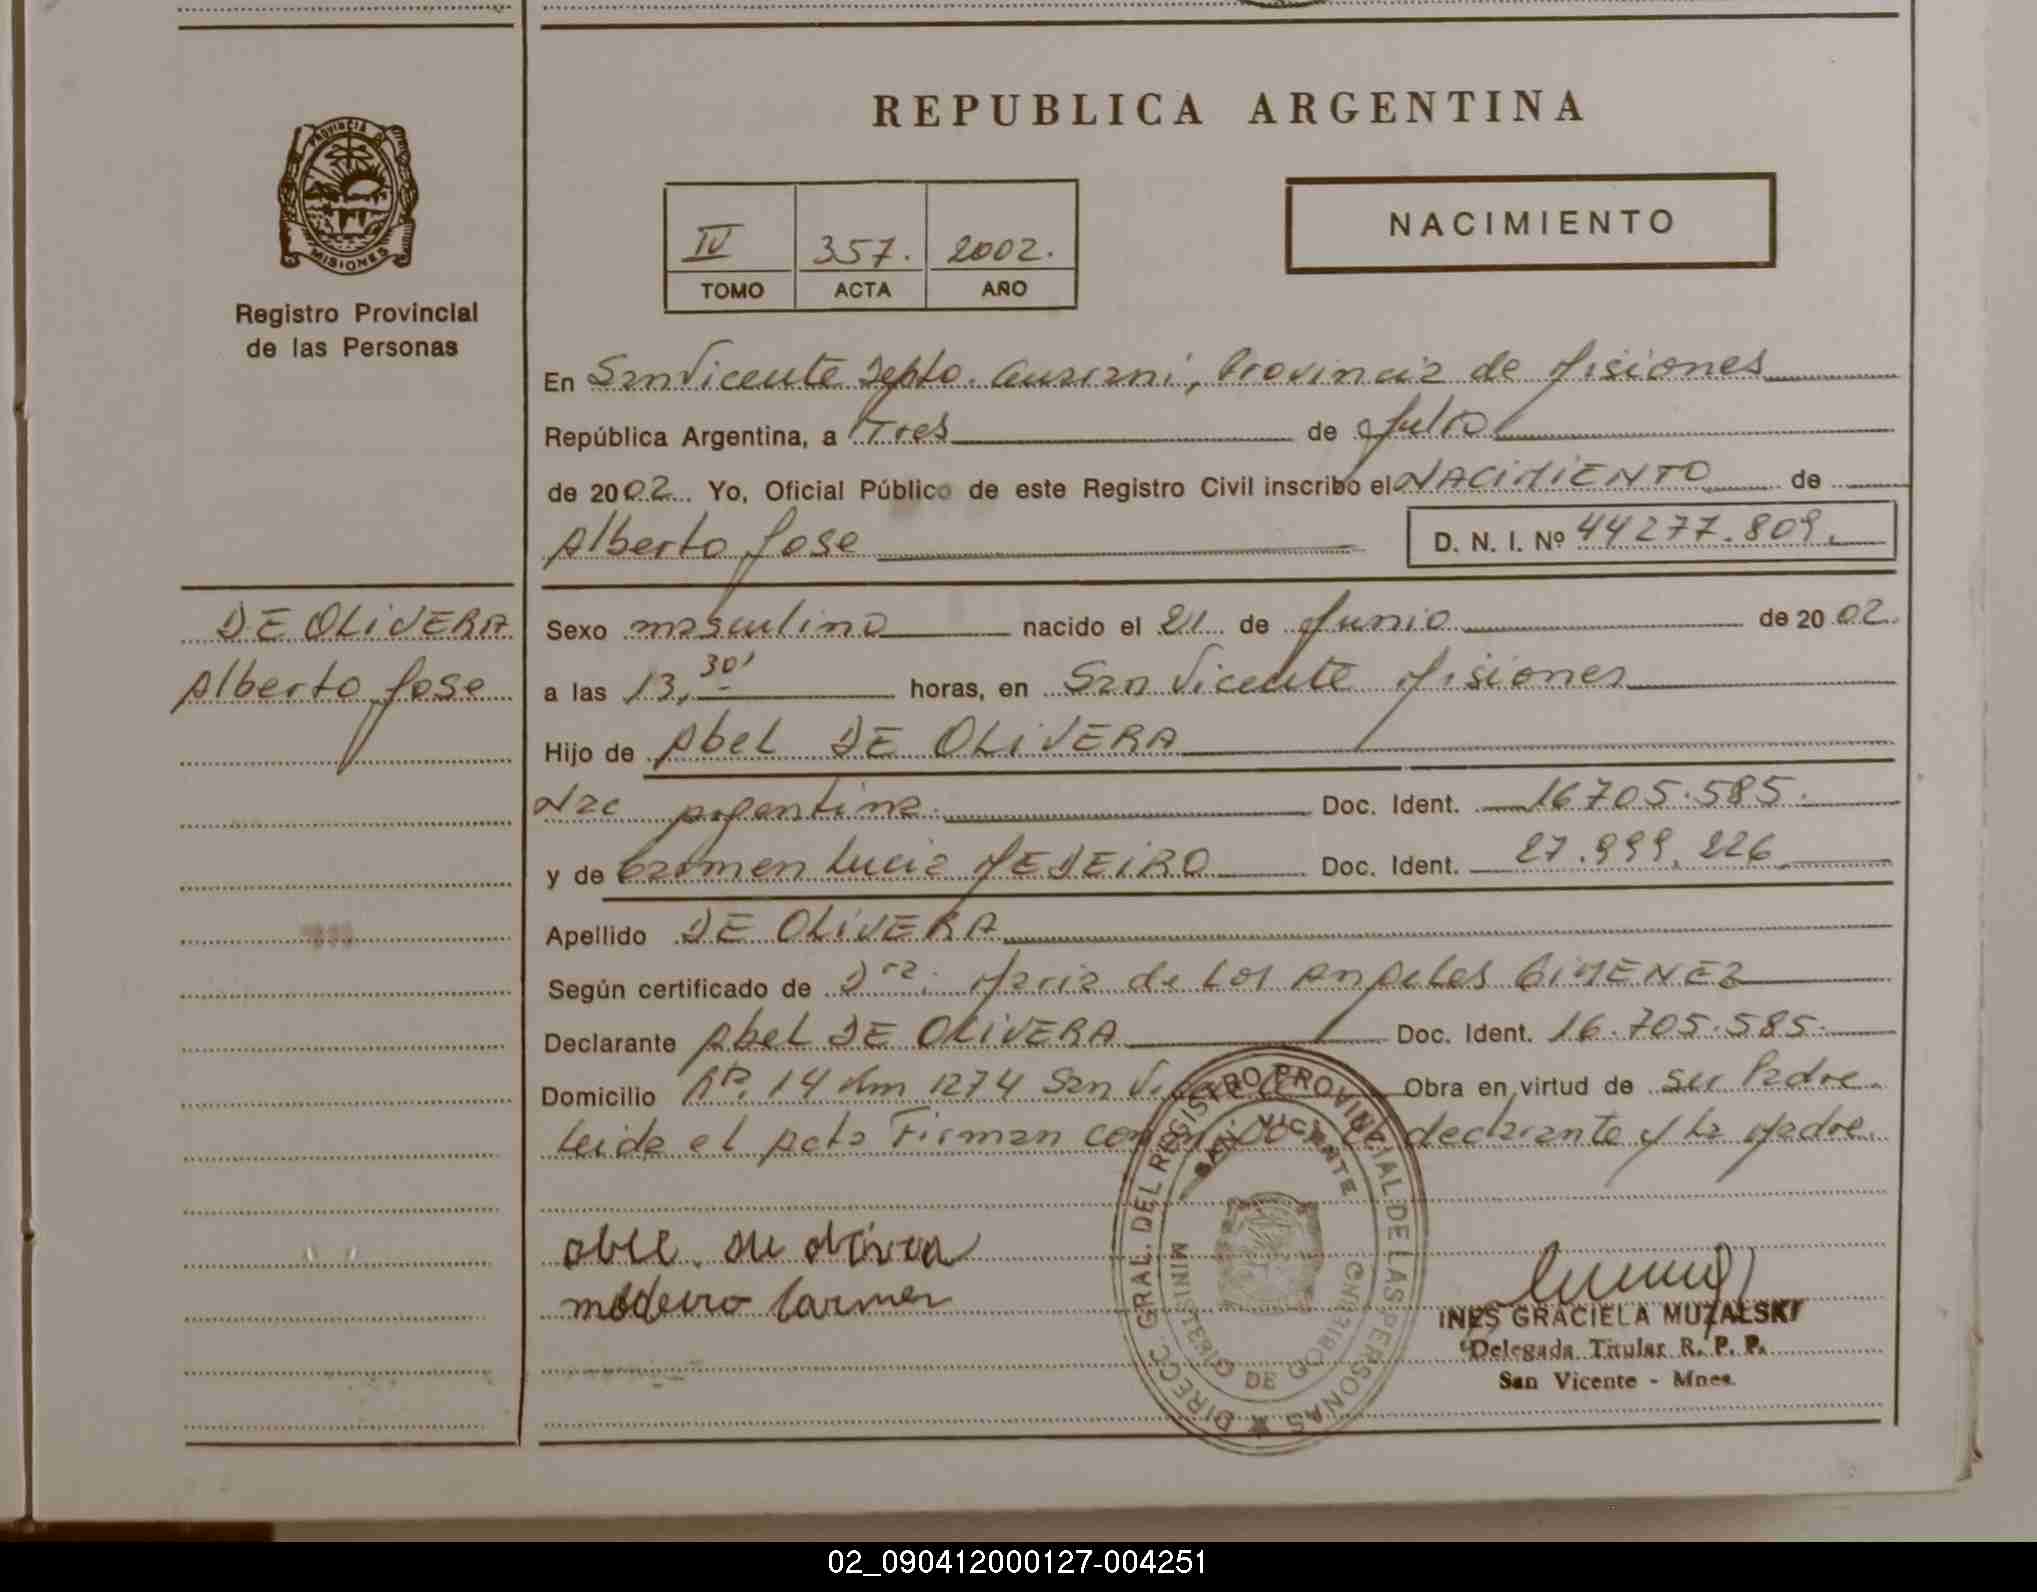 REPUBLICA ARGENTINA
PROVINCIA DE
MISIONES
Registro Provincial
de las Personas
IV 357. 2002.
TOMO ACTA AÑO
NACIMIENTO
En San Vicente Depto. Guarani, Provincia de Misiones
República Argentina, a Tres de Julio
de 2002 Yo, Oficial Público de este Registro Civil inscribo el NACIMIENTO de
Alberto Jose D. N. I. Nº 44277.809.
DE OLIVERA
Alberto Jose
Sexo masculino nacido el 21 de Junio de 2002.
a las 13,30' horas, en San Vicente Misiones
Hijo de Abel DE OLIVERA
Nac Argentina Doc. Ident. 16705.585.
y de Carmen Lucia MEDEIRO Doc. Ident. 27.999.226
Apellido DE OLIVERA
Según certificado de Dra. Maria de Los Angeles GIMENEZ
Declarante Abel DE OLIVERA Doc. Ident. 16.705.585.
Domicilio Rta. 14 Km 1274 San Vicente Obra en virtud de ser Padre.
Leida el acta Firman conmigo el declarante y la Madre.
DIRECC. GRAL. DEL REGISTRO PROVINCIAL DE LAS PERSONAS
SAN VICENTE
MINISTERIO DE GOBIERNO
medeiro Carmen
INES GRACIELA MUZALSKI
Delegada Titular R. P. P.
San Vicente - Mnes.
02_090412000127-004251